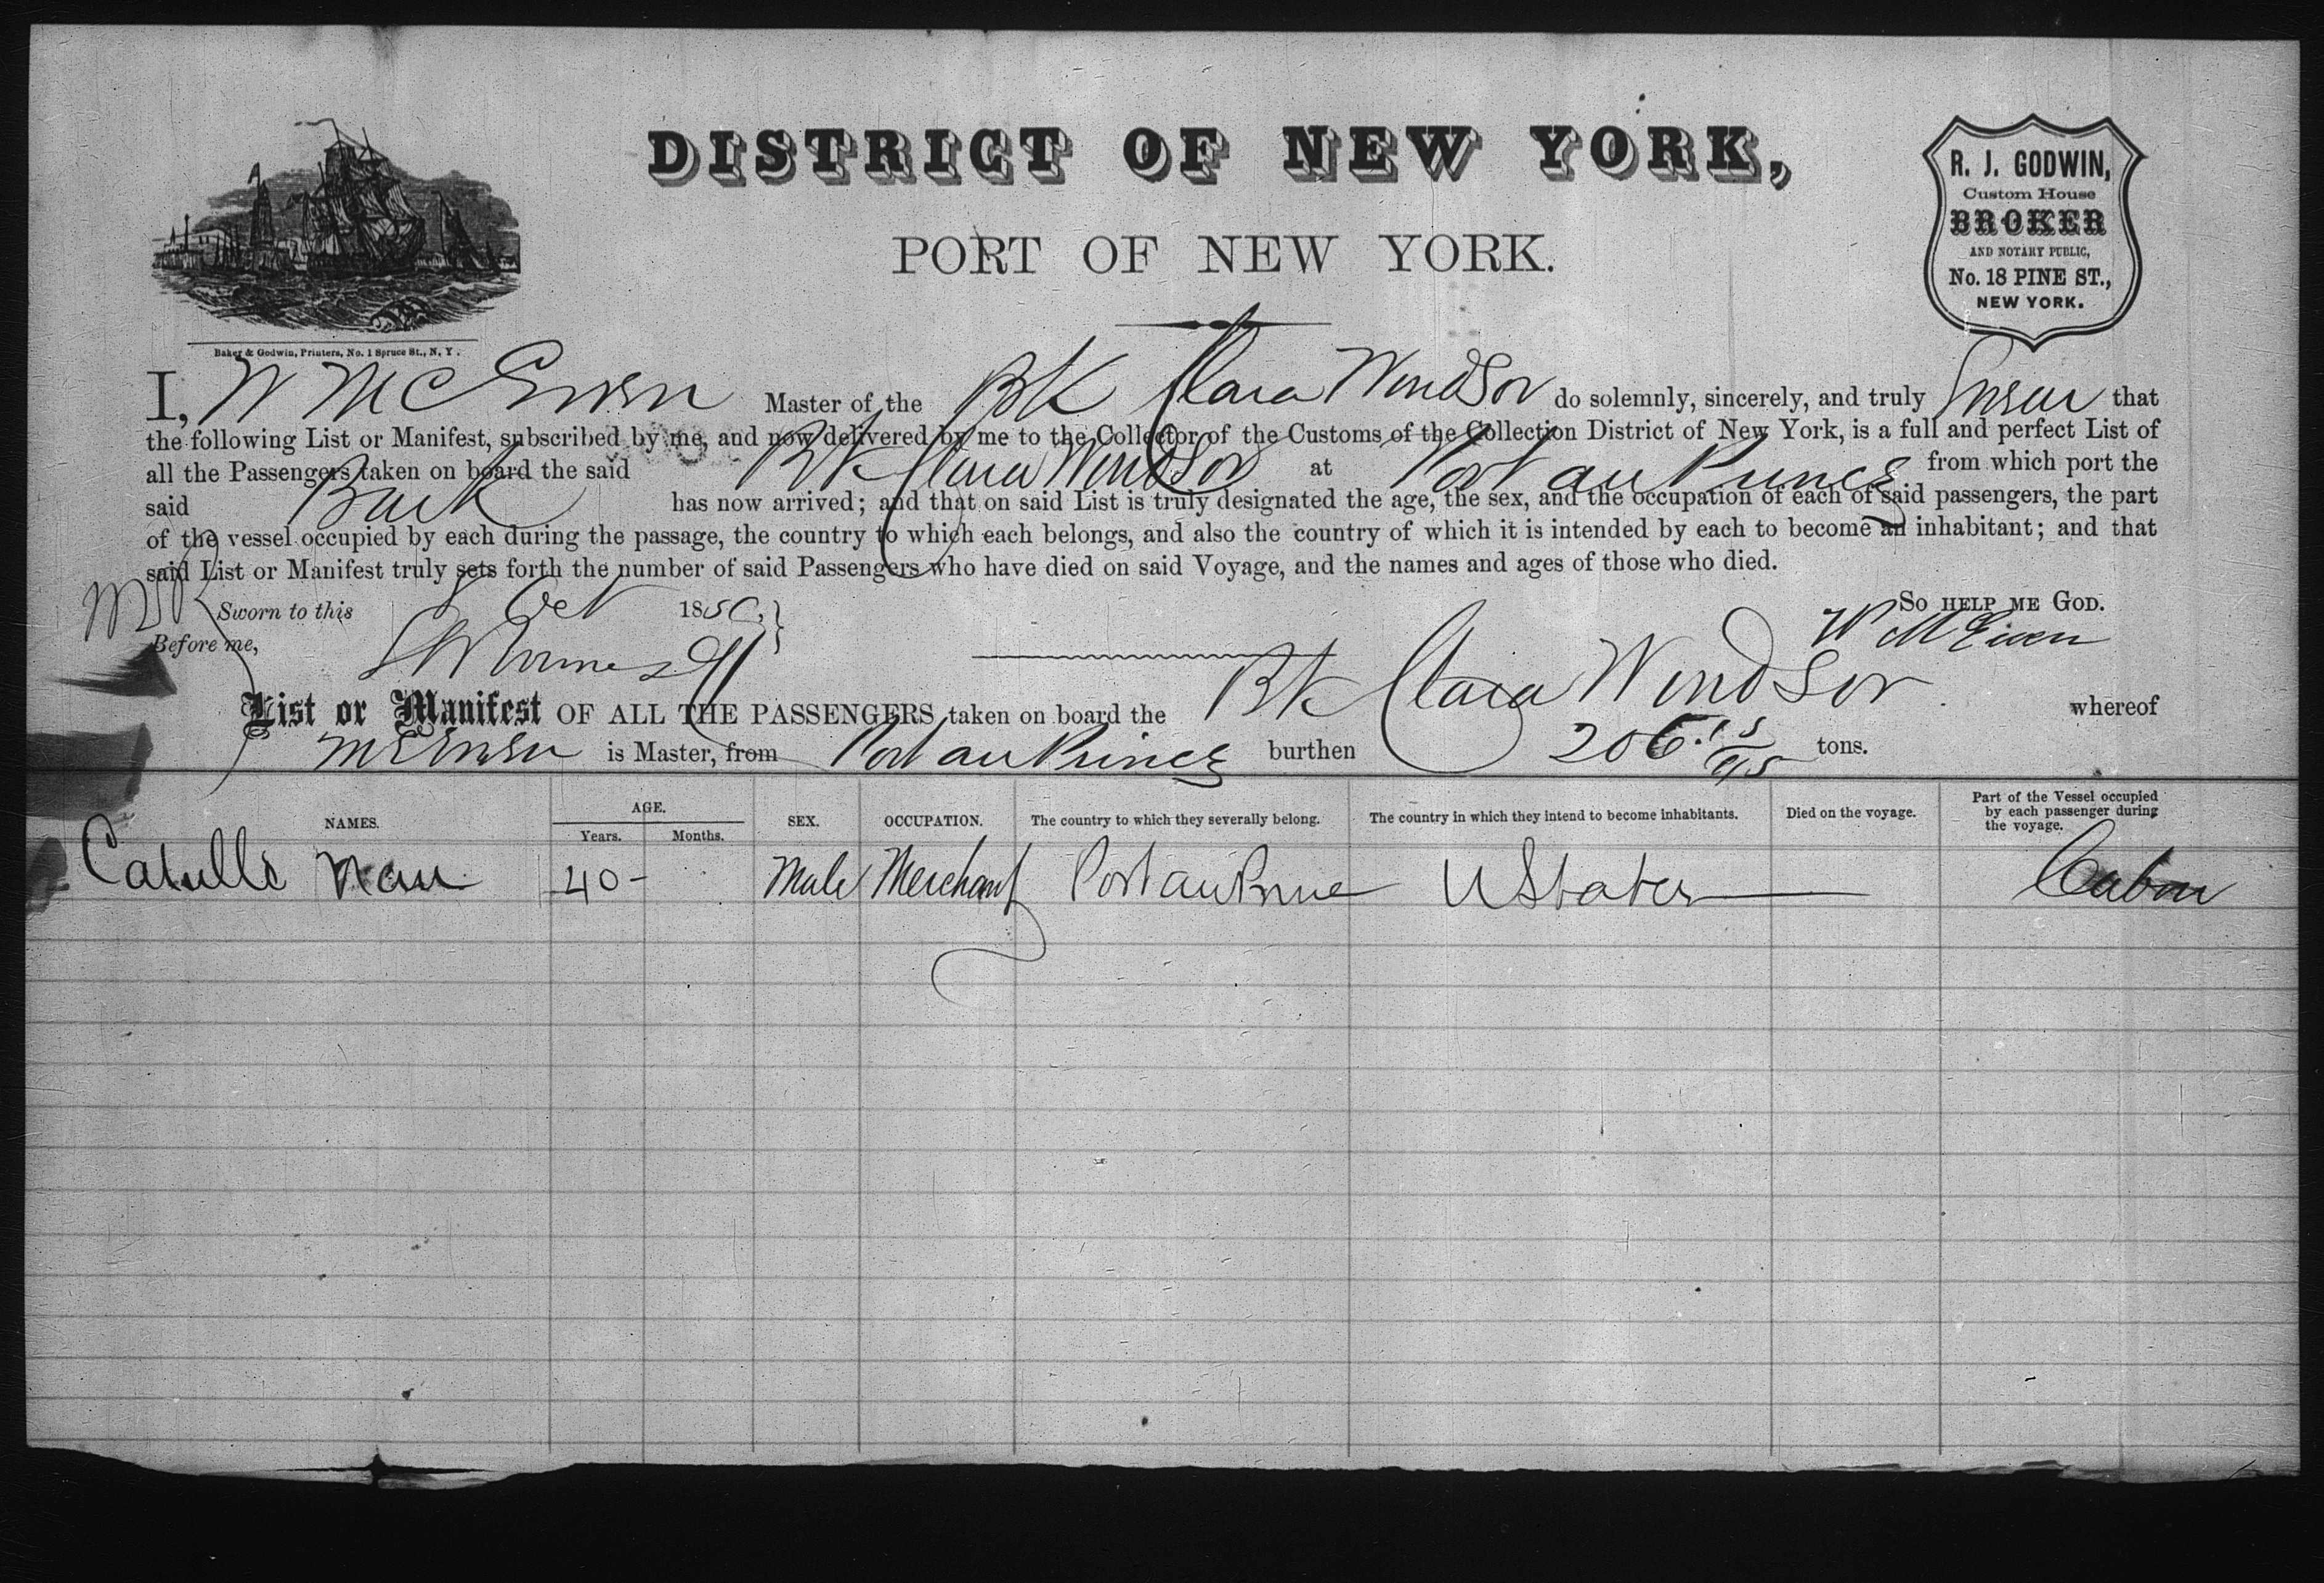 DISTRICT OF NEW YORK,
PORT OF NEW YORK.
R. J. GODWIN,
Custom House
BROKER
AND NOTARY PUBLIC,
No. 18 PINE ST.,
NEW YORK.
Baker & Godwin, Printers, No. 1 Spruce St., N. Y.
I, W McEwen Master of the Bk Clara Windsor do solemnly, sincerely, and truly Swear that
the following List or Manifest, subscribed by me, and now delivered by me to the Collector of the Customs of the Collection District of New York, is a full and perfect List of
all the Passengers taken on board the said Bk Clara Windsor at Port au Prince from which port the
said Bark has now arrived; and that on said List is truly designated the age, the sex, and the occupation of each of said passengers, the part
of the vessel occupied by each during the passage, the country to which each belongs, and also the country of which it is intended by each to become an inhabitant; and that
said List or Manifest truly sets forth the number of said Passengers who have died on said Voyage, and the names and ages of those who died.
So HELP ME GOD.
Sworn to this 8 Oct 185
W McEwen
Before me,
List or Manifest OF ALL THE PASSENGERS taken on board the Bk Clara Windsor whereof
McEwen is Master, from Port au Prince burthen 206 15/95 tons.
NAMES. AGE. Years. Months. SEX. OCCUPATION. The country to which they severally belong. The country in which they intend to become inhabitants. Died on the voyage. Part of the Vessel occupied by each passenger during the voyage.
Catulle Nau 40 - Male Merchant Port au Prince U States Cabin